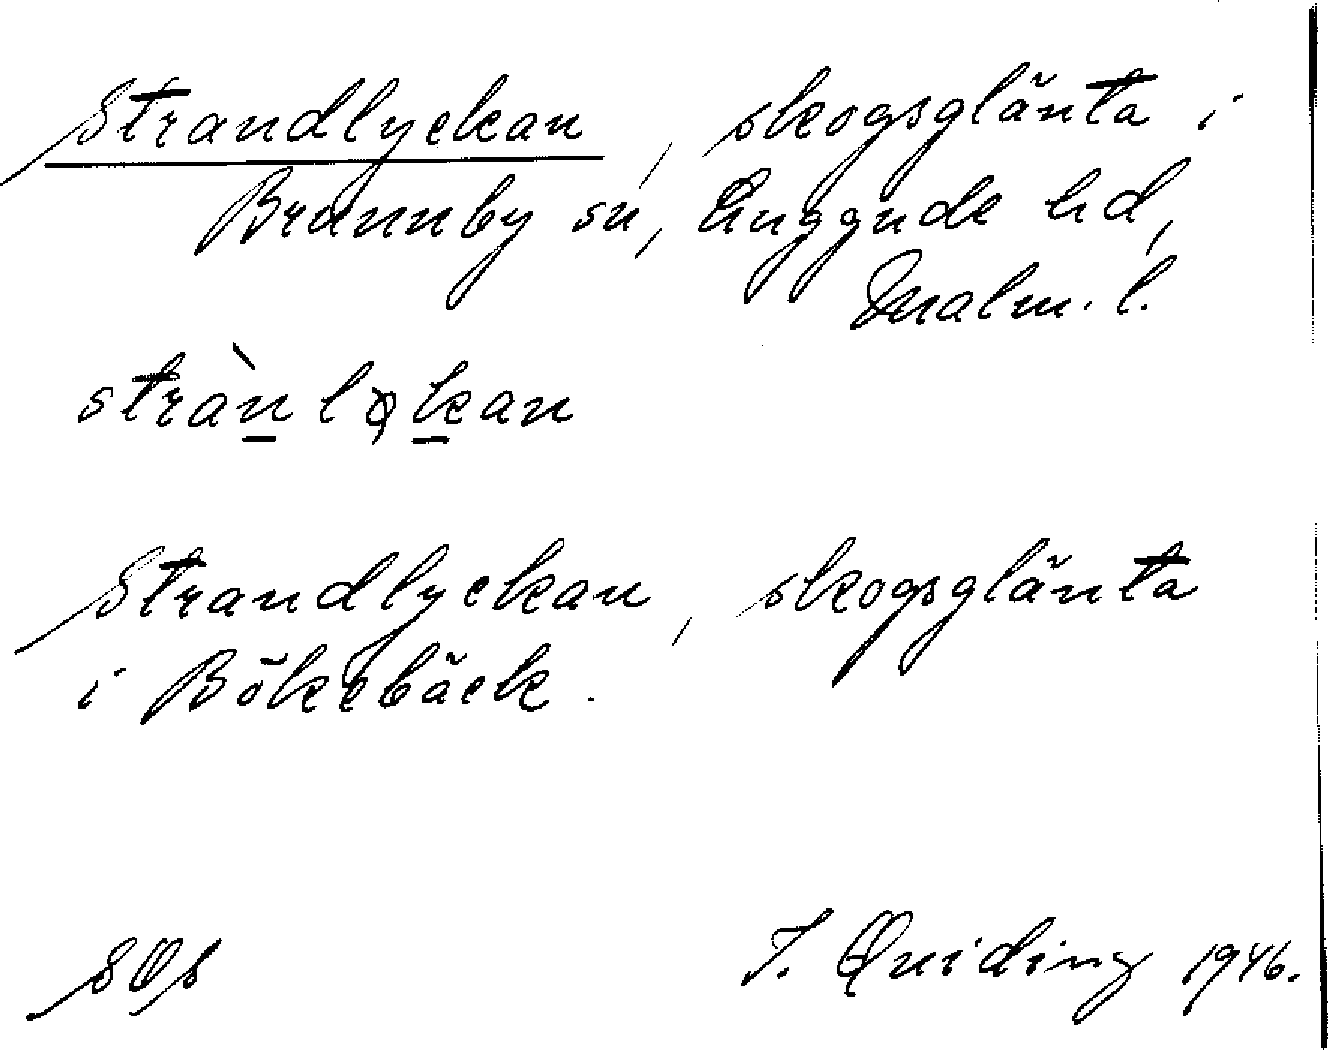 Strandlyckan, skogsglänta i
Brunnby sn, Luggude hd,
Malm. l.
stràn lǫkan
Strandlyckan, skogsglänta
i Bökebäck.
SOs
I. Quiding 1946.